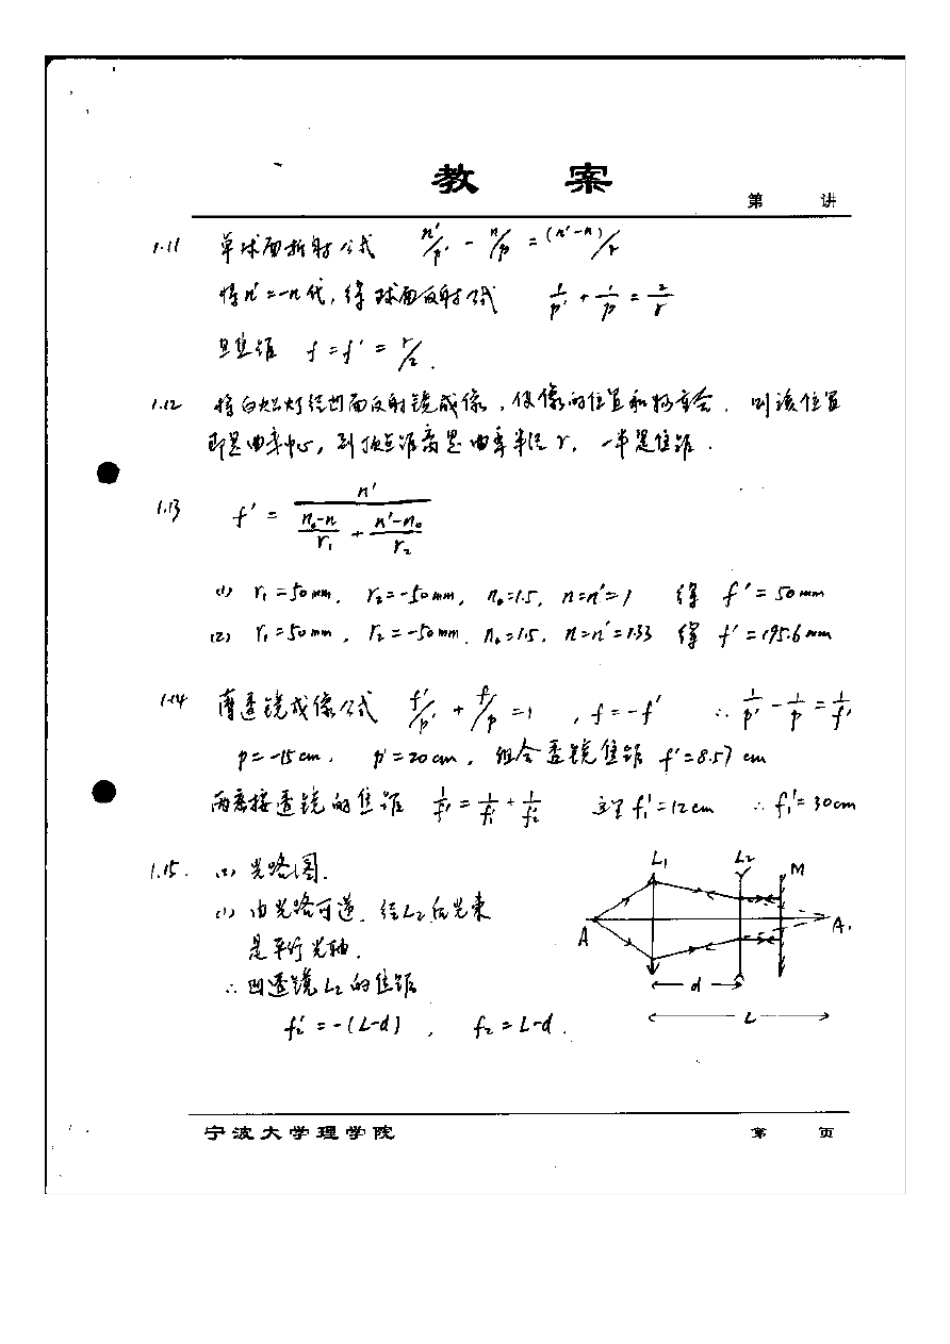 教 案
第 讲
1.11 单球面折射公式 n'/p' - n/p = (n'-n)/r
将n'=-n代,得球面反射公式 1/p' + 1/p = 2/r
且焦距 f = f' = r/2.
1.12 将白炽灯经凹面反射镜成像,使像的位置和物重合. 则该位置
即是曲率中心,到顶点距离是曲率半径 r, 一半是焦距.
1.13 f' = n' / ((n₀-n)/r₁ + (n'-n₀)/r₂)
(1) r₁=50mm, r₂=-50mm, n₀=1.5, n=n'=1 得 f'=50mm
(2) r₁=50mm, r₂=-50mm. n₀=1.5, n=n'=1.33 得 f'=195.6mm
1.14 薄透镜成像公式 f'/p' + f/p = 1 , f=-f' ∴ 1/p' - 1/p = 1/f'
p=-15cm, p'=20cm, 组合透镜焦距 f'=8.57 cm
两密接透镜的焦距 1/f' = 1/f₁' + 1/f₂' f₁'=12cm ∴ f₂'=30cm
1.15. (2) 光路图.
(1) 由光路可逆. 经L₂后光束
是平行光轴.
∴ 凹透镜L₂的焦距
f₂' = -(L-d) , f₂ = L-d.
L₁ L₂ M
A A₁
d
L
宁波大学理学院 第 页